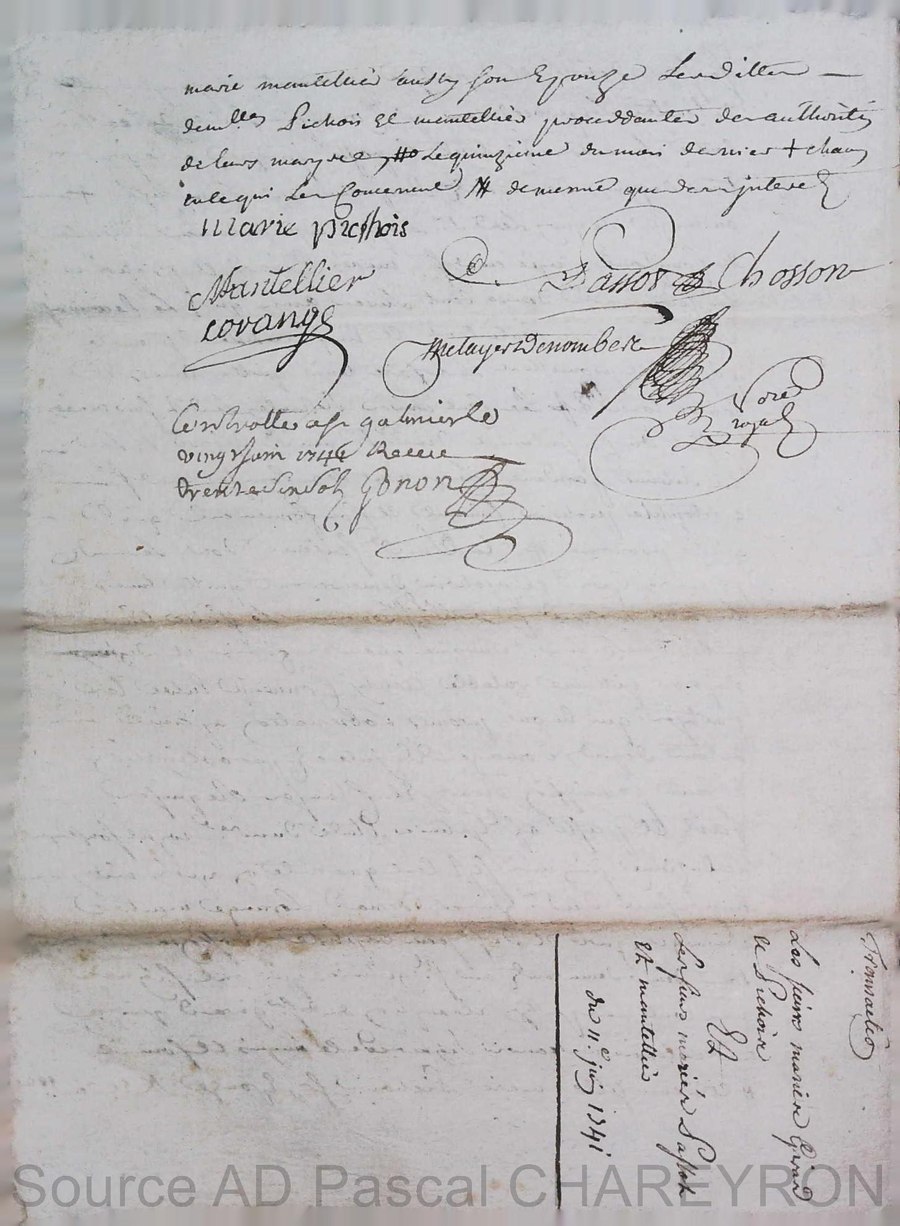 marie mantellier aussy son Epouze Lesditter —
demlles Pichois Et mantellier proceddanter der authorité
de leurs marys Le quinzieme du mois dernier + chacun
en ce qui Les Concerne de mesme que des intere
marie pichois
Mantellier
Corange
Chosson
Metayer Denombere
Nore
royal
Controlle a St galmier le
vingt Juin 1741 Receu
trente six sols Gonon
Transaction
Les sieurs mariés Girard
Et Pichois
Et
Les sieurs mariés
Et mantellier
du 11e juin 1741
Source AD Pascal CHAREYRON